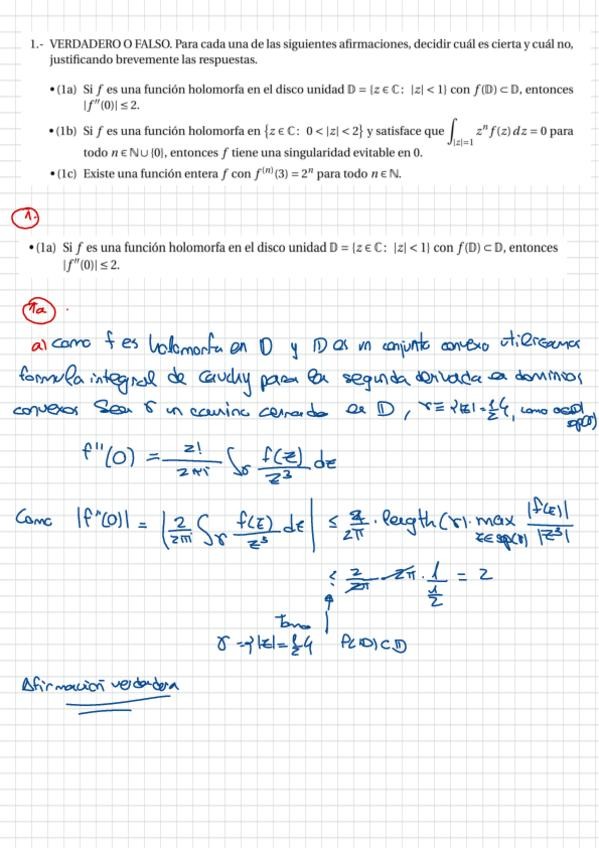 1.- VERDADERO O FALSO. Para cada una de las siguientes afirmaciones, decidir cuál es cierta y cuál no,
justificando brevemente las respuestas.
• (1a) Si f es una función holomorfa en el disco unidad 𝔻 = {z ∈ ℂ : |z| < 1} con f(𝔻) ⊂ 𝔻, entonces
|f''(0)| ≤ 2.
• (1b) Si f es una función holomorfa en {z ∈ ℂ : 0 < |z| < 2} y satisface que ∫_{|z|=1} zⁿ f(z) dz = 0 para
todo n ∈ ℕ ∪ {0}, entonces f tiene una singularidad evitable en 0.
• (1c) Existe una función entera f con f⁽ⁿ⁾(3) = 2ⁿ para todo n ∈ ℕ.
1.
• (1a) Si f es una función holomorfa en el disco unidad 𝔻 = {z ∈ ℂ : |z| < 1} con f(𝔻) ⊂ 𝔻, entonces
|f''(0)| ≤ 2.
1a
a) Como f es holomorfa en D y D es un conjunto convexo utilizamos
formula integral de Cauchy para la segunda derivada en dominios
convexos Sea γ un camino cerrado en D, γ ≡ {|z| = 1/2}, como 0 ∉ sp(γ)
f''(0) = 2!/2πi ∫γ f(z)/z³ dz
Como |f''(0)| = |2/2πi ∫γ f(z)/z³ dz| ≤ 2/2π · length(γ) · max z∈sp(γ) |f(z)|/|z³|
≤ 2/2π · 2π · 1/(1/2) = 2
γ = {|z| = 1/2} f(D) ⊂ D
Afirmación verdadera